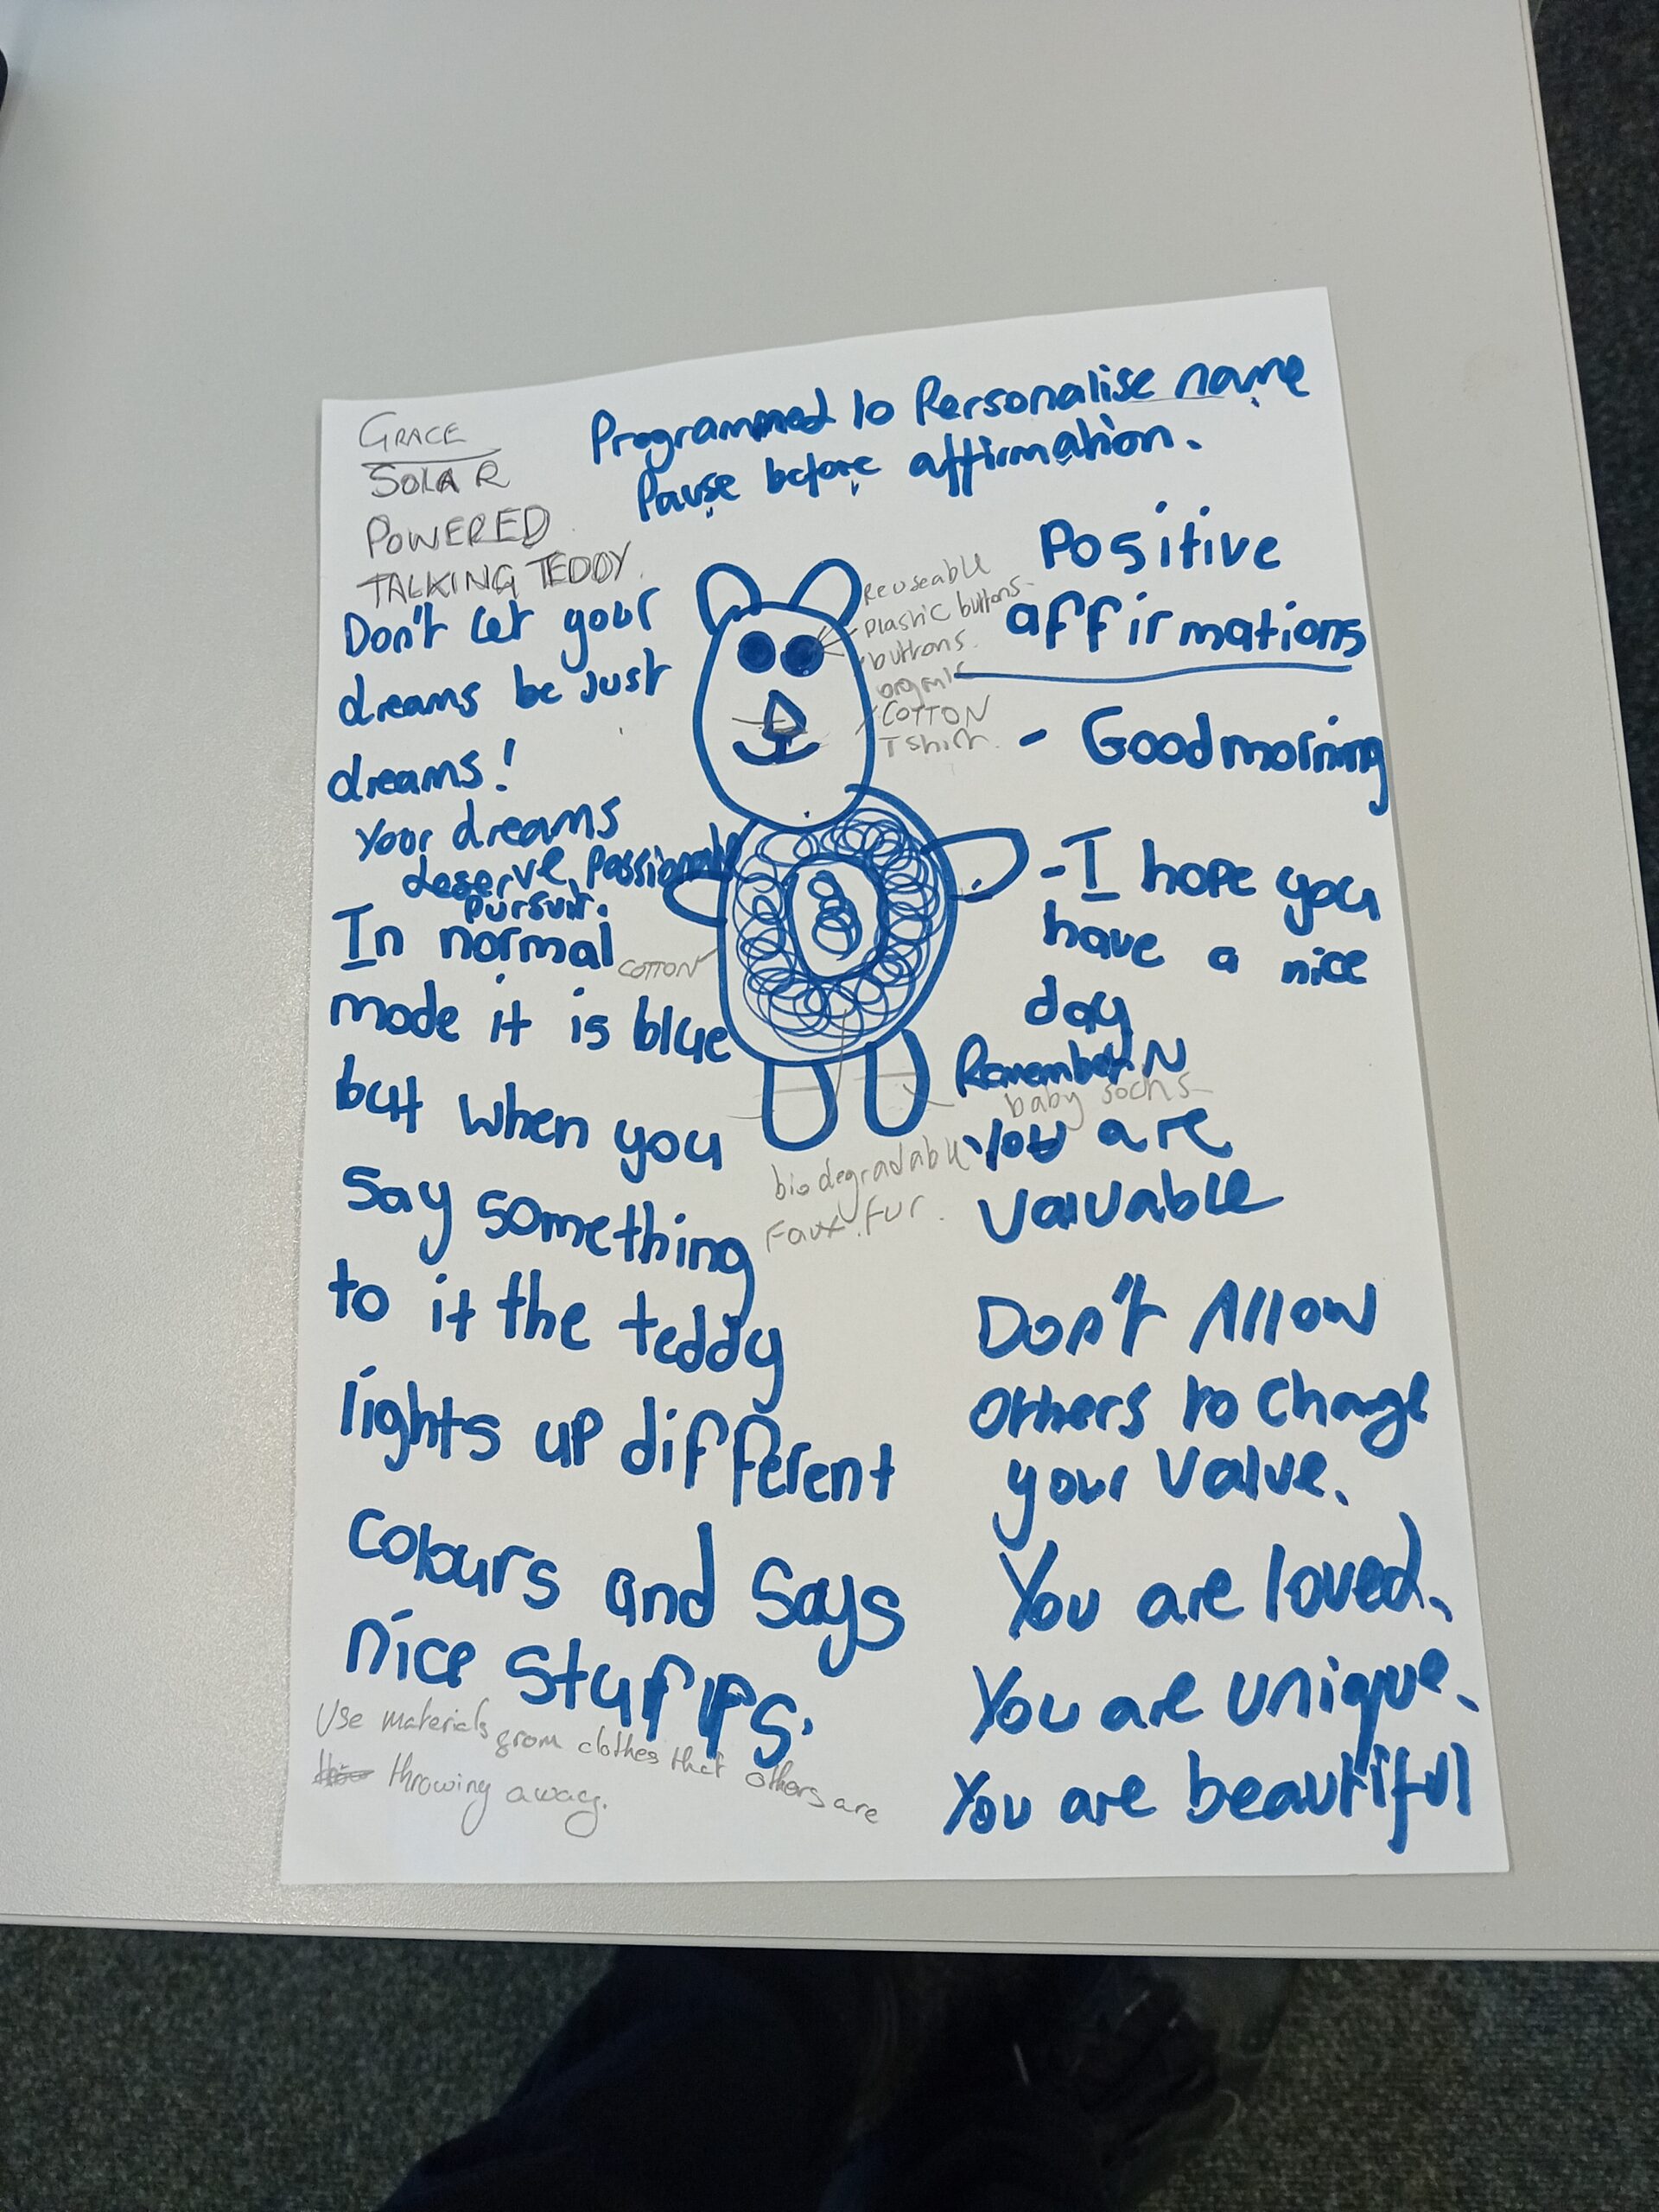 GRACE
SOLAR
POWERED
TALKING TEDDY.
Programmed to Personalise name
Pause before affirmation.
Don't let your
dreams be just
dreams!
Your dreams
deserve passionate
pursuit.
In normal
mode it is blue
but when you
say something
to it the teddy
lights up different
colours and says
nice stuffs.
Use materials from clothes that others are
throwing away.
Reuseable
plastic buttons.
buttons.
organic
COTTON
T shirt.
COTTON
baby socks
biodegradable
Faux fur.
Positive
affirmations
- Good morning
- I hope you
have a nice
day
Remember
You are
valuable
Don't Allow
others to change
your value.
You are loved.
You are unique.
You are beautiful